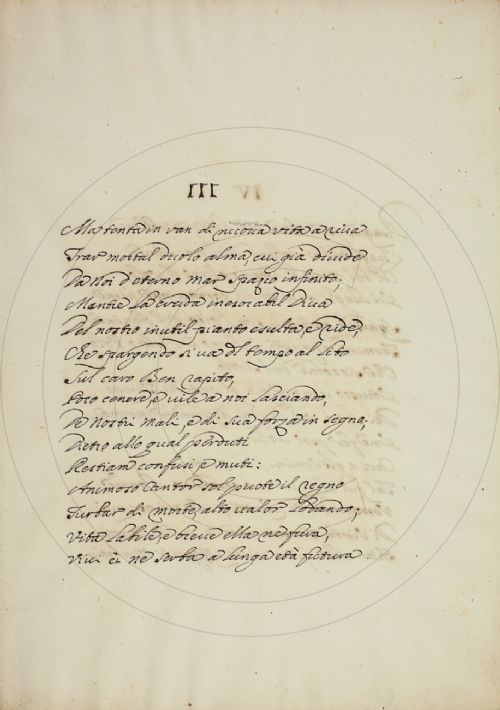 III
Ma tenta in van di nuova vita a riva
Trar mortal duolo alma, cui già divide
Da Noi d'eterno mar spazio infinito;
Mentre la cruda inesorabil Diva
Del nostro inutil pianto esulta, e ride,
Che spargendo si va del tempo al lito
Sul caro Ben rapito,
Poco cenere, e vile a noi lasciando,
De Nostri Mali, e di sua forza in segno;
Dietro allo qual perduti
Restiam confusi e muti:
Animoso Cantor sol puote il regno
Turbar di morte, alto valor lodando;
Vita labile, e breve ella ne fura,
Vivi ei ne serba a lunga età futura